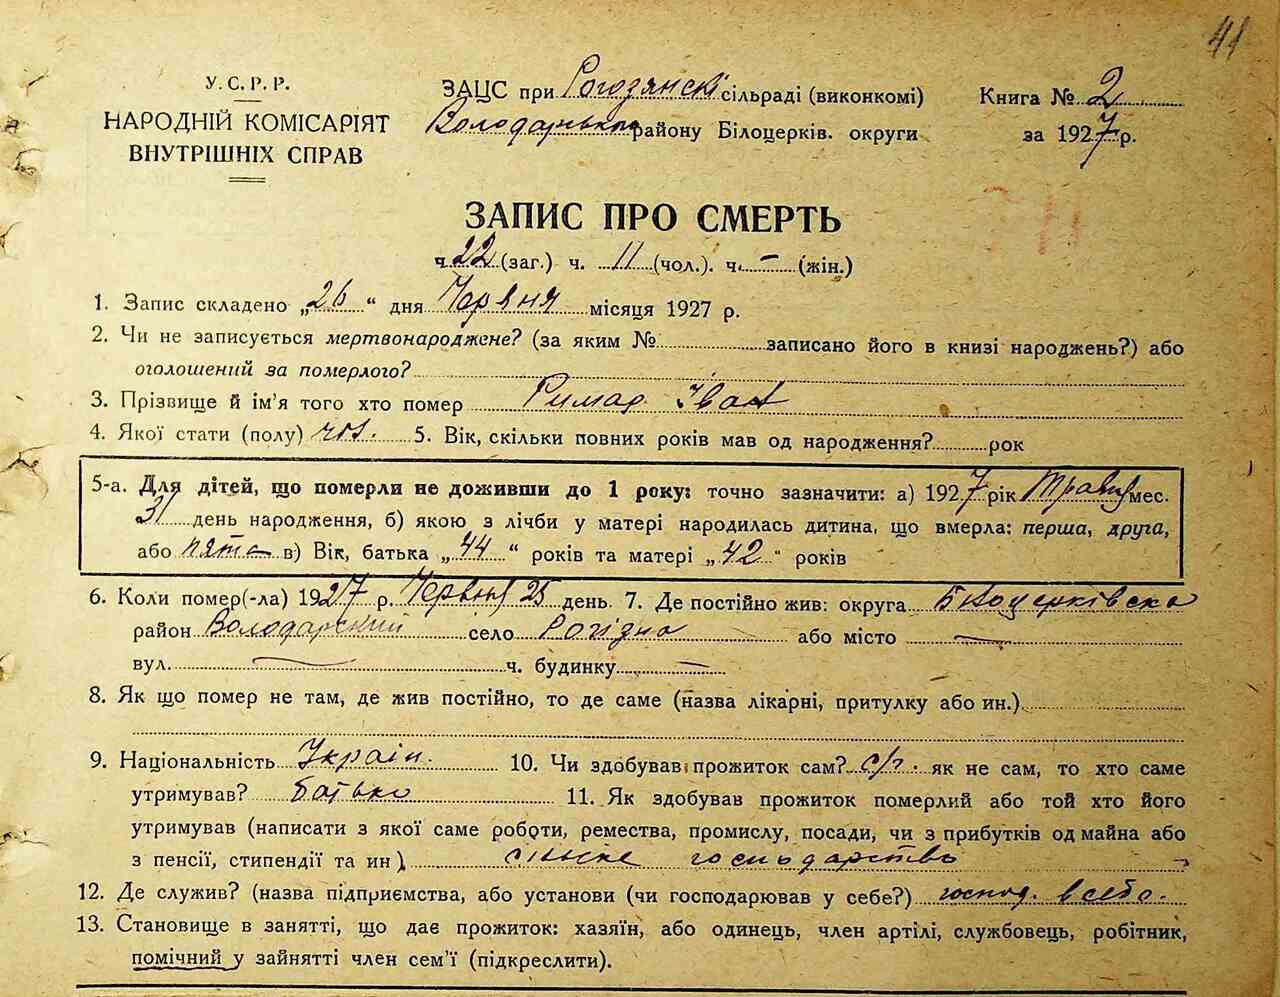 41
У. С. Р. Р.
НАРОДНІЙ КОМІСАРІЯТ
ВНУТРІШНІХ СПРАВ
ЗАЦС при Рогозянскі сільраді (виконкомі)
Володарського району Білоцерків. округи
Книга № 2
за 1927 р.
ЗАПИС ПРО СМЕРТЬ
ч. 22 (заг.) ч. 11 (чол.). ч. - (жін.)
1. Запис складено „26“ дня Червня місяця 1927 р.
2. Чи не записується мертвонароджене? (за яким № записано його в книзі народжень?) або
оголошений за померлого?
3. Прізвище й ім'я того хто помер Римар Іван
4. Якої стати (полу) чол. 5. Вік, скільки повних років мав од народження? рок
5-а. Для дітей, що померли не доживши до 1 року: точно зазначити: а) 1927 рік Травня мес.
31 день народження, б) якою з лічби у матері народилась дитина, що вмерла: перша, друга,
або пята в) Вік, батька „44“ років та матері „42“ років
6. Коли помер(-ла) 1927 р. Червня 25 день. 7. Де постійно жив: округа Білоцерківска
район Володарский село Рогізна або місто —
вул. — ч. будинку —
8. Як що помер не там, де жив постійно, то де саме (назва лікарні, притулку або ин.)
9. Національність Україн. 10. Чи здобував прожиток сам? с/г. як не сам, то хто саме
утримував? батько 11. Як здобував прожиток померлий або той хто його
утримував (написати з якої саме роботи, ремества, промислу, посади, чи з прибутків од майна або
з пенсії, стипендії та ин) сільске господарство
12. Де служив? (назва підприємства, або установи (чи господарював у себе?) господ. в себе.
13. Становище в занятті, що дає прожиток: хазяїн, або одинець, член артілі, службовець, робітник,
помічний у зайнятті член сем'ї (підкреслити).